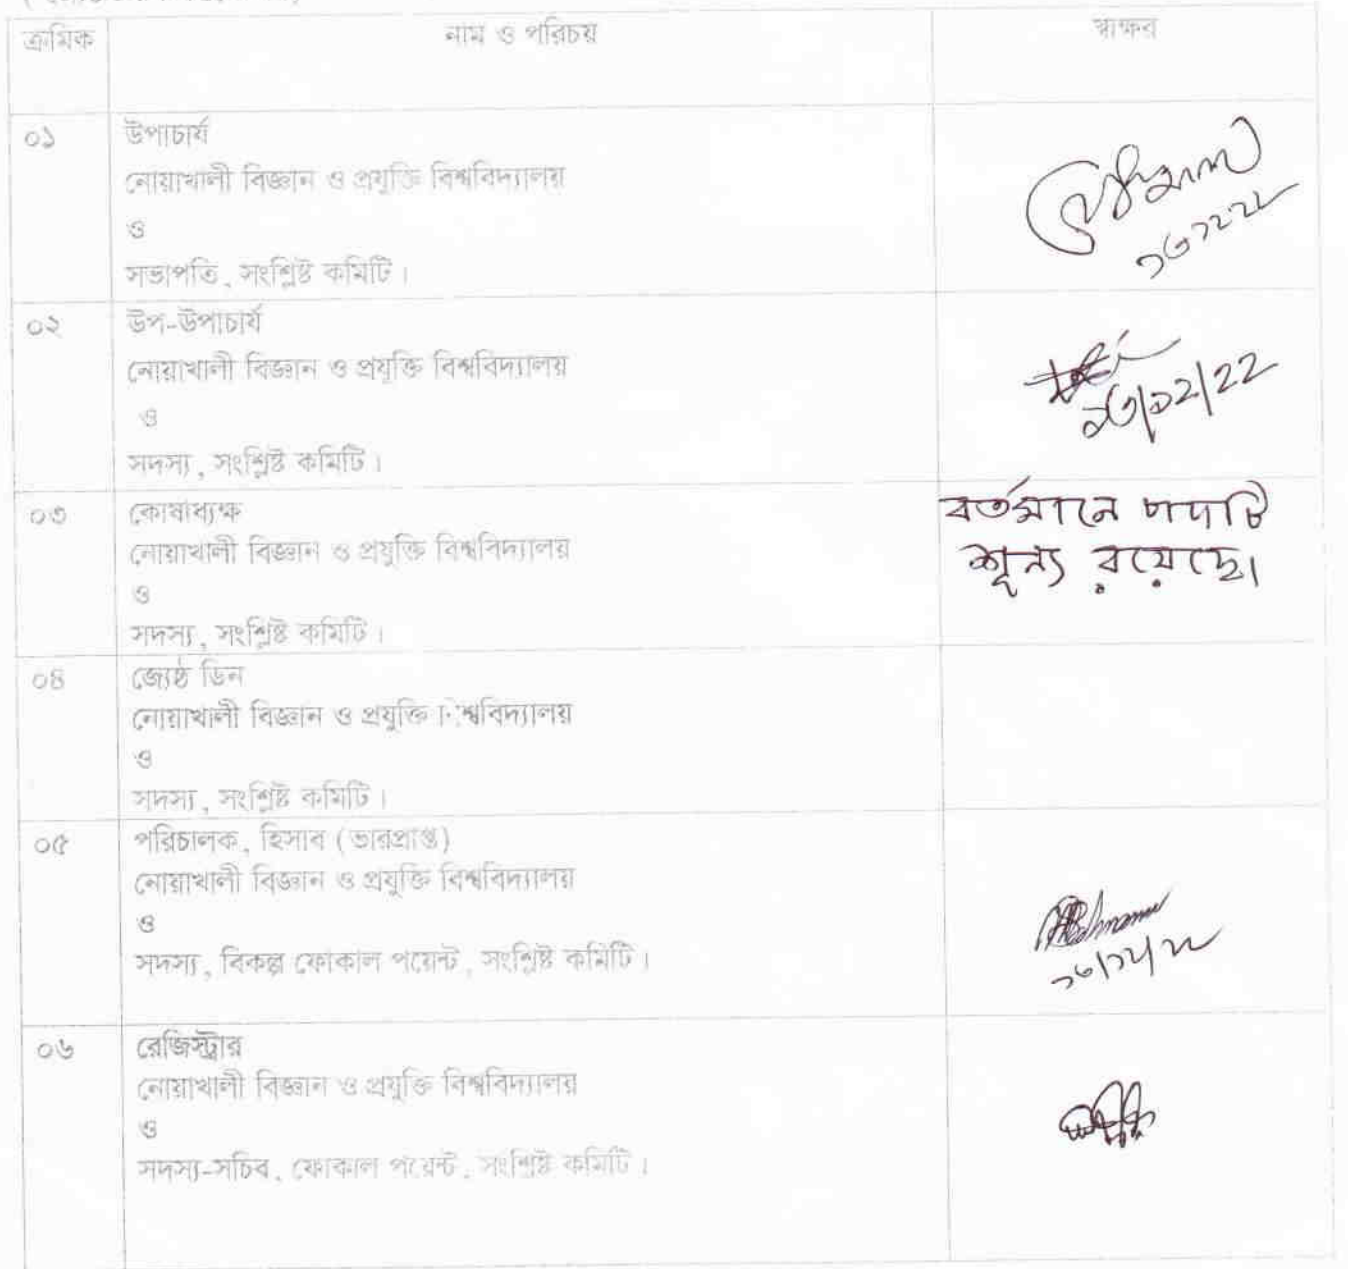 ক্রমিক
নাম ও পরিচয়
স্বাক্ষর
০১
উপাচার্য
নোয়াখালী বিজ্ঞান ও প্রযুক্তি বিশ্ববিদ্যালয়
ও
সভাপতি, সংশ্লিষ্ট কমিটি।
০২
উপ-উপাচার্য
নোয়াখালী বিজ্ঞান ও প্রযুক্তি বিশ্ববিদ্যালয়
ও
সদস্য, সংশ্লিষ্ট কমিটি।
১৩/১২/22
০৩
কোষাধ্যক্ষ
নোয়াখালী বিজ্ঞান ও প্রযুক্তি বিশ্ববিদ্যালয়
ও
সদস্য, সংশ্লিষ্ট কমিটি।
বর্তমানে পদটি
শূন্য রয়েছে।
০৪
জ্যেষ্ঠ ডিন
নোয়াখালী বিজ্ঞান ও প্রযুক্তি বিশ্ববিদ্যালয়
ও
সদস্য, সংশ্লিষ্ট কমিটি।
০৫
পরিচালক, হিসাব (ভারপ্রাপ্ত)
নোয়াখালী বিজ্ঞান ও প্রযুক্তি বিশ্ববিদ্যালয়
ও
সদস্য, বিকল্প ফোকাল পয়েন্ট, সংশ্লিষ্ট কমিটি।
০৬
রেজিস্ট্রার
নোয়াখালী বিজ্ঞান ও প্রযুক্তি বিশ্ববিদ্যালয়
ও
সদস্য-সচিব, ফোকাল পয়েন্ট, সংশ্লিষ্ট কমিটি।